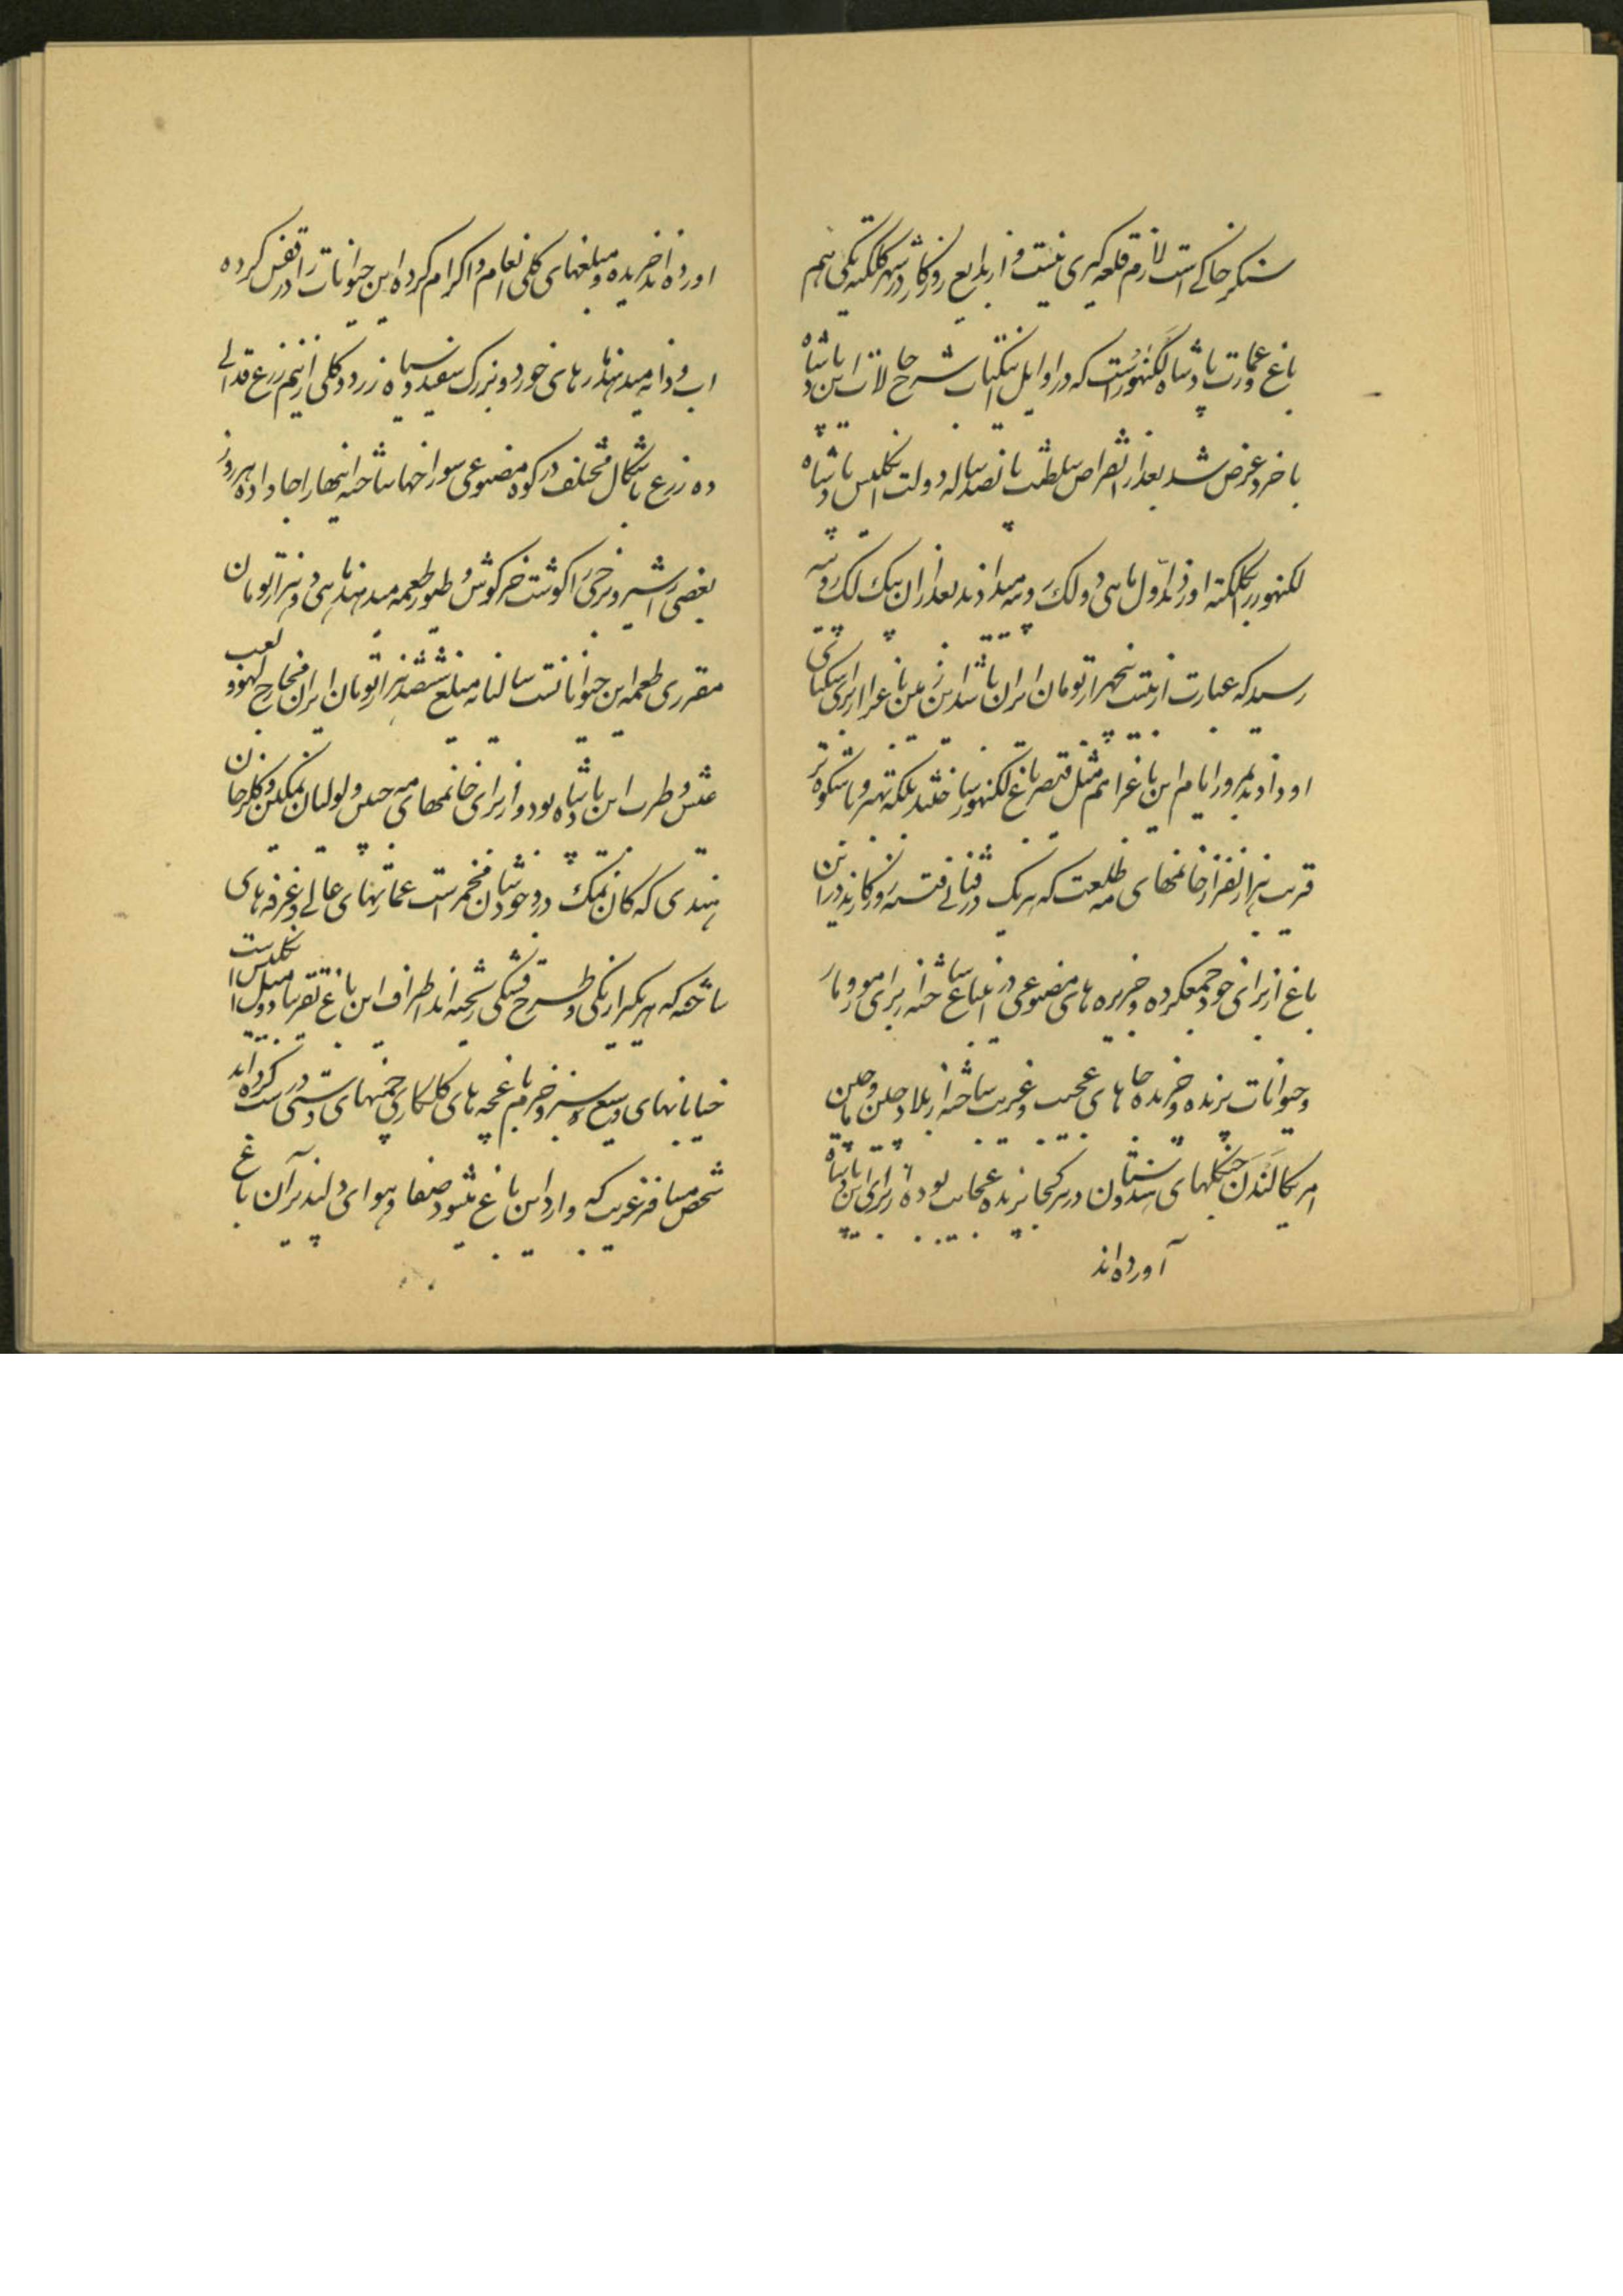 سنکر خاکے است لازم قلعه کیری نیست و از بدایع روزکار در شهر کلکته یکی هم
باغ و عمارت پادشاه لکنهور است که در اوایل اینکتاب شرح حالات این پادشاه
با خرد عرض شد بعد از انقراض سلطنت پانصد ساله دولت انکلیس پادشاه
لکنهور را بکلکته اوردند اول ماهی دو لک روپیه میدادند بعد از ان بیک لک روپیه
رسید که عبارت از بیست پنجهزار تومان ایران باشد این زمین باغ را برای سکنای
او دادند بمرور ایام این باغ را هم مثل قیصر باغ لکنهور ساختند بلکه بهتر و باشکوه تر
قریب هزار نفر از خانمهای مه طلعت که هر یک در زیبائی فتنه روزکارند در این
باغ از برای خود جمعکرده و جزیره های مصنوعی در این باغ ساخته از برای مور و مار
و حیوانات پرنده و خزنده جا های عجیب و غریب ساخته از بلاد چین و ماچین
امریکا لندن جنکلهای هندوستان در هر کجا پرنده عجایب بوده از برای این پادشاه
آورده اند
اورده اند خریده و مبلغهای کلی انعام و اکرام کرده این حیوانات را در قفس کرده
اب و دانه میدهند مار های خورد و بزرک سفید و سیاه زرد و کلی از نیم زرع قد الی
ده زرع باشکال مختلف در کوه مصنوعی سوراخها ساخته اینها را جا داده هر روز
بعضی را شیر و برخی را کوشت خرکوش و طیور طعمه میدهند ماهی دو هزار تومان
مقرری طعمه این حیوانانست سالیانه مبلغ ششصد هزار تومان ایران مخارج لهو و لعب
عیش و طرب این پادشاه بود و از برای خانمهای مه جبین و لولیان نمکین و کلرخان
هندی که کان نمک در وجودشان مخمر است عمارتهای عالے و غرفه های
ساخته که هر یک را رنکی و طرح قشنکی ریخته اند اطراف این باغ تقریبا دو میل انکلیس است
خیابانهای وسیع و سبز و خرم باغچه های کلکاری چمنهای دستی درست کرده اند
شخص مسافر غریب که وارد این باغ میشود صفا و هوای دلپذیر آن باغ